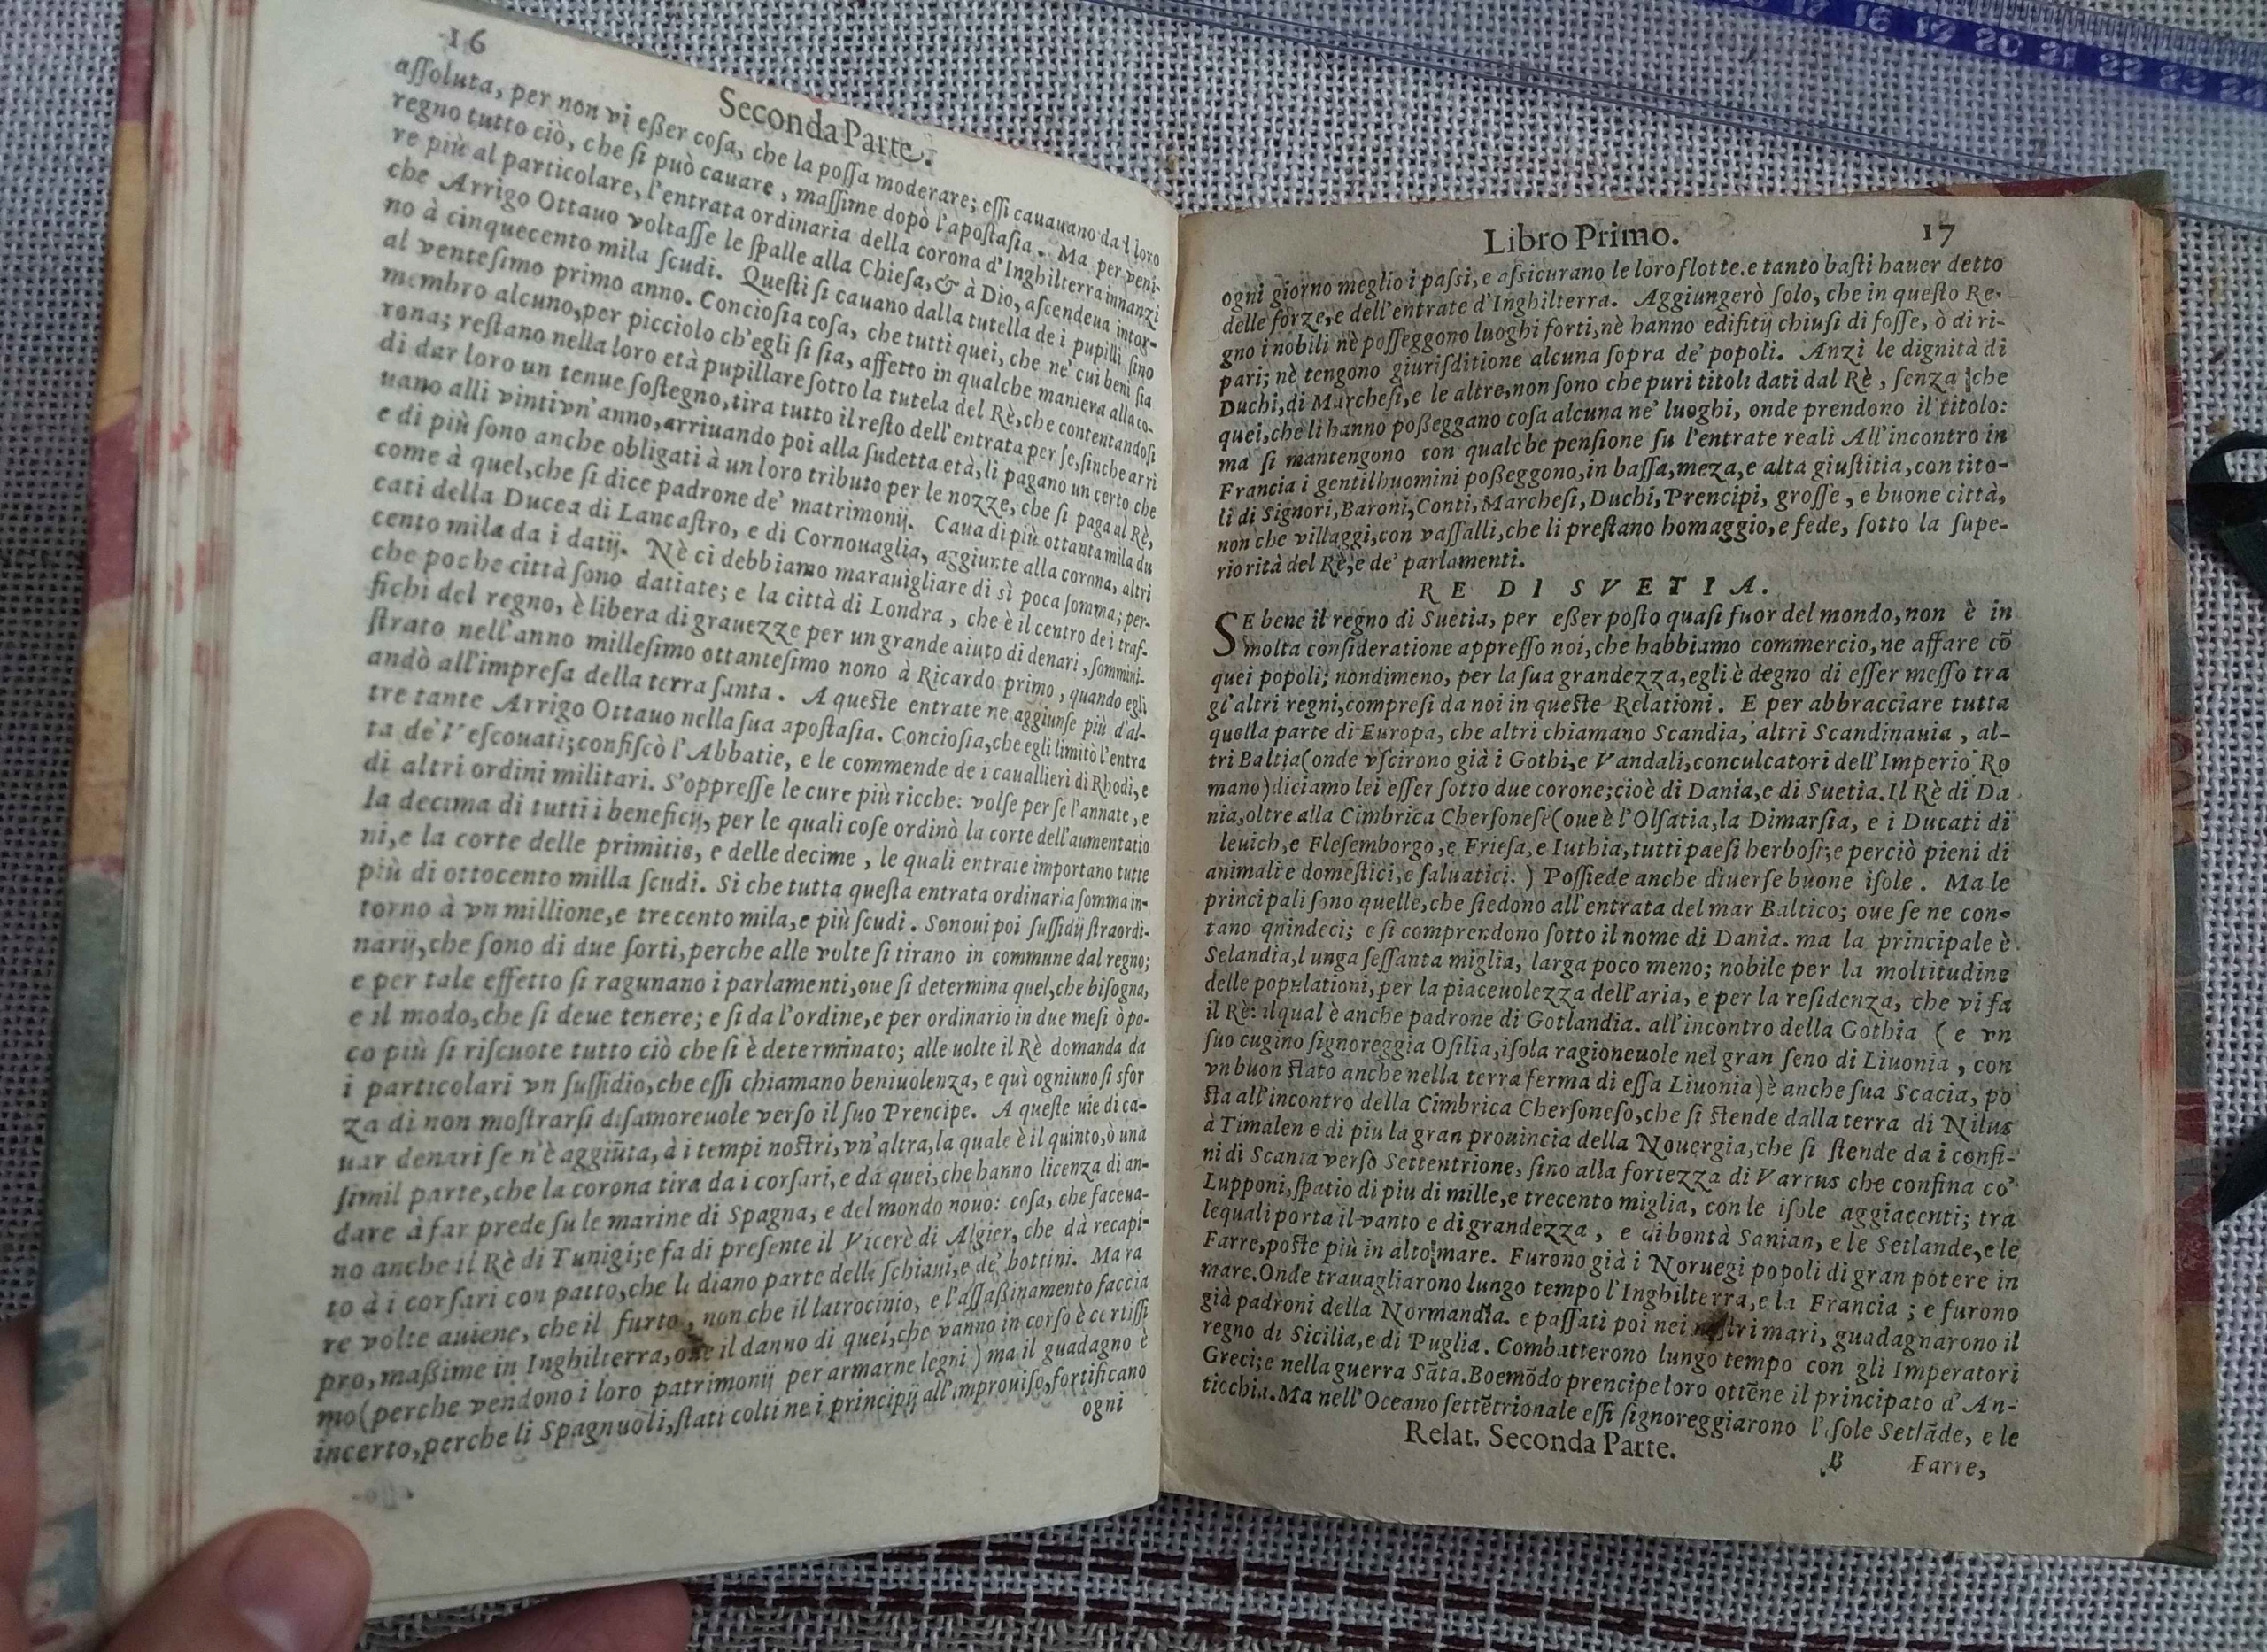 16
Seconda Parte.
aſſoluta, per non vi eßer coſa, che la poſſa moderare; eſſi cauauano dal loro
regno tutto ciò, che ſi può cauare, maſſime dopò l'apoſtaſia. Ma per veni-
re più al particolare, l'entrata ordinaria della corona d'Inghilterra innanzi
che Arrigo Ottauo voltaſſe le ſpalle alla Chieſa, & à Dio, aſcendeua intor-
no à cinquecento mila ſcudi. Queſti ſi cauano dalla tutella de i pupilli ſino
al venteſimo primo anno. Concioſia coſa, che tutti quei, che ne' cui beni ſia
membro alcuno, per picciolo ch'egli ſi ſia, affetto in qualche maniera alla co-
rona; reſtano nella loro età pupillare ſotto la tutela del Rè, che contentandoſi
di dar loro un tenue ſoſtegno, tira tutto il reſto dell'entrata per ſe, ſinche arri
uano alli vintivn'anno, arriuando poi alla ſudetta età, li pagano un certo che
e di più ſono anche obligati à un loro tributo per le nozze, che ſi paga al Rè,
come à quel, che ſi dice padrone de' matrimonij. Caua di più ottanta mila du
cati della Ducea di Lancaſtro, e di Cornouaglia, aggiunte alla corona, altri
cento mila da i datij. Nè ci debbiamo marauigliare di sì poca ſomma; per-
che poche città ſono datiate; e la città di Londra, che è il centro de i traf-
fichi del regno, è libera di grauezze per un grande aiuto di denari, ſommini-
ſtrato nell'anno milleſimo ottanteſimo nono à Ricardo primo, quando egli
andò all'impreſa della terra ſanta. A queſte entrate ne aggiunſe più d'al-
tre tante Arrigo Ottauo nella ſua apoſtaſia. Concioſia, che egli limitò l'entra
ta de' Veſcouati; confiſcò l'Abbatie, e le commende de i cauallieri di Rhodi, e
di altri ordini militari. S'oppreſſe le cure più ricche: volſe per ſe l'annate, e
la decima di tutti i beneficij, per le quali coſe ordinò la corte dell'aumentatio
ni, e la corte delle primitie, e delle decime, le quali entrate importano tutte
più di ottocento milla ſcudi. Si che tutta queſta entrata ordinaria ſomma in-
torno à vn millione, e trecento mila, e più ſcudi. Sonoui poi ſuſſidij ſtraordi-
narij, che ſono di due ſorti, perche alle volte ſi tirano in commune dal regno;
e per tale effetto ſi ragunano i parlamenti, oue ſi determina quel, che biſogna,
e il modo, che ſi deue tenere; e ſi da l'ordine, e per ordinario in due meſi ò po-
co più ſi riſcuote tutto ciò che ſi è determinato; alle uolte il Rè domanda da
i particolari vn ſuſſidio, che eſſi chiamano beniuolenza, e quì ogniuno ſi sfor
za di non moſtrarſi diſamoreuole verſo il ſuo Prencipe. A queſte uie di ca-
uar denari ſe n'è aggiūta, à i tempi noſtri, vn'altra, la quale è il quinto, ò una
ſimil parte, che la corona tira da i corſari, e da quei, che hanno licenza di an-
dare à far prede ſu le marine di Spagna, e del mondo nouo: coſa, che faceua-
no anche il Rè di Tunigi; e fa di preſente il Vicerè di Algier, che dà recapi-
to à i corſari con patto, che li diano parte delli ſchiaui, e de' bottini. Ma ra
re volte auiene, che il furto, non che il latrocinio, e l'aſſaßinamento faccia
pro, maßime in Inghilterra, oue il danno di quei, che vanno in corſo è certiſſi
mo (perche vendono i loro patrimonij per armarne legni) ma il guadagno è
incerto, perche li Spagnuoli, ſtati colti ne i principij all'improuiſo, fortificano
ogni
Libro Primo.
17
ogni giorno meglio i paſsi, e aſsicurano le loro flotte. e tanto baſti hauer detto
delle forze, e dell'entrate d'Inghilterra. Aggiungerò ſolo, che in queſto Re-
gno i nobili nè poſſeggono luoghi forti, nè hanno edifitij chiuſi di foſſe, ò di ri-
pari; nè tengono giuriſditione alcuna ſopra de' popoli. Anzi le dignità di
Duchi, di Marcheſi, e le altre, non ſono che puri titoli dati dal Rè, ſenza che
quei, che li hanno poßeggano coſa alcuna ne' luoghi, onde prendono il titolo:
ma ſi mantengono con qualche penſione ſu l'entrate reali All'incontro in
Francia i gentilhuomini poßeggono, in baſſa, meza, e alta giuſtitia, con tito-
li di Signori, Baroni, Conti, Marcheſi, Duchi, Prencipi, groſſe, e buone città,
non che villaggi, con vaſſalli, che li preſtano homaggio, e fede, ſotto la ſupe-
riorità del Rè, e de' parlamenti.
RE DI SVETIA.
SE bene il regno di Suetia, per eßer poſto quaſi fuor del mondo, non è in
molta conſideratione appreſſo noi, che habbiamo commercio, ne affare cō
quei popoli; nondimeno, per la ſua grandezza, egli è degno di eſſer meſſo tra
gl'altri regni, compreſi da noi in queſte Relationi. E per abbracciare tutta
quella parte di Europa, che altri chiamano Scandia, altri Scandinauia, al-
tri Baltia (onde vſcirono già i Gothi, e Vandali, conculcatori dell'Imperio Ro
mano) diciamo lei eſſer ſotto due corone; cioè di Dania, e di Suetia. Il Rè di Da
nia, oltre alla Cimbrica Cherſoneſe (oue è l'Olſatia, la Dimarſia, e i Ducati di
leuich, e Fleſemborgo, e Frieſa, e Iuthia, tutti paeſi herboſi; e perciò pieni di
animali e domeſtici, e ſaluatici.) Poſſiede anche diuerſe buone iſole. Ma le
principali ſono quelle, che ſiedono all'entrata del mar Baltico; oue ſe ne con-
tano quindeci; e ſi comprendono ſotto il nome di Dania. ma la principale è
Selandia, lunga ſeſſanta miglia, larga poco meno; nobile per la moltitudine
delle populationi, per la piaceuolezza dell'aria, e per la reſidenza, che vi fa
il Rè: il qual è anche padrone di Gotlandia. all'incontro della Gothia (e vn
ſuo cugino ſignoreggia Oſilia, iſola ragioneuole nel gran ſeno di Liuonia, con
vn buon ſtato anche nella terra ferma di eſſa Liuonia) è anche ſua Scacia, po
ſta all'incontro della Cimbrica Cherſoneſo, che ſi ſtende dalla terra di Nilus
à Timalen e di piu la gran prouincia della Nouergia, che ſi ſtende da i confi-
ni di Scania verſo Settentrione, ſino alla fortezza di Varrus che confina co'
Lupponi, ſpatio di piu di mille, e trecento miglia, con le iſole aggiacenti; tra
lequali porta il vanto e di grandezza, e di bontà Sanian, e le Setlande, e le
Farre, poſte più in alto mare. Furono già i Noruegi popoli di gran potere in
mare. Onde trauagliarono lungo tempo l'Inghilterra, e la Francia; e furono
già padroni della Normandia. e paſſati poi nei noſtri mari, guadagnarono il
regno di Sicilia, e di Puglia. Combatterono lungo tempo con gli Imperatori
Greci; e nella guerra Sāta. Boemōdo prencipe loro ottēne il principato d'An-
ticchia. Ma nell'Oceano ſettētrionale eſſi ſignoreggiarono l'iſole Setlāde, e le
Relat. Seconda Parte.
B
Farre,
16 17 18 19 20 21 22 23 24